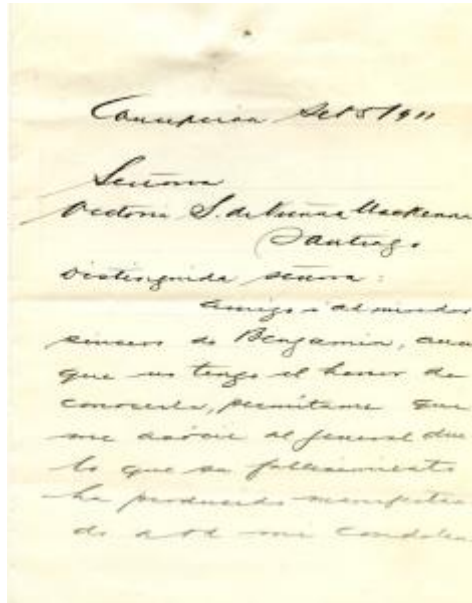 Concepcion Set 5/911
Señora
Victoria S. de Vicuña Mackenna
Santiago
Distinguida señora:
Amigo i admirador
sincero de Benjamin, aun
que no tengo el honor de
conocerla, permítame que
me asocie al jeneral due
lo que su fallecimiento
ha producido manifestan
do a Ud mi condolen